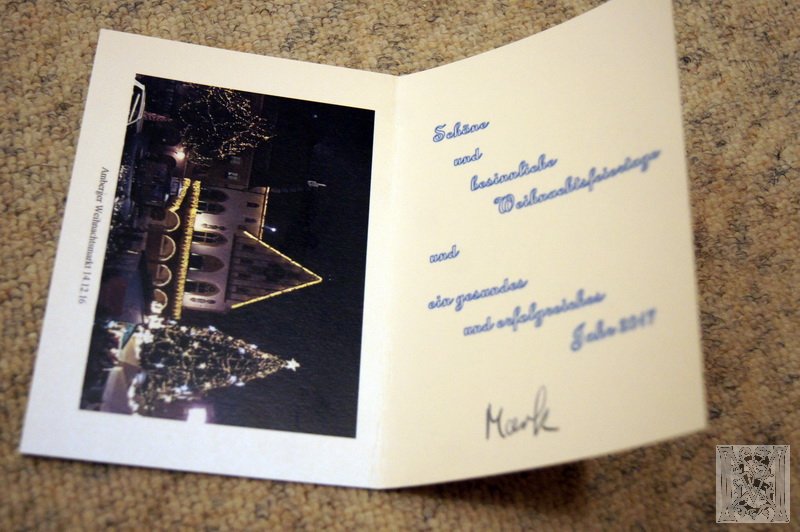 Amberger Weihnachtsmarkt 14 12 16
Schöne
und
besinnliche
Weihnachtsfeiertage
und
ein gesundes
und erfolgreiches
Jahr 2017
Mark